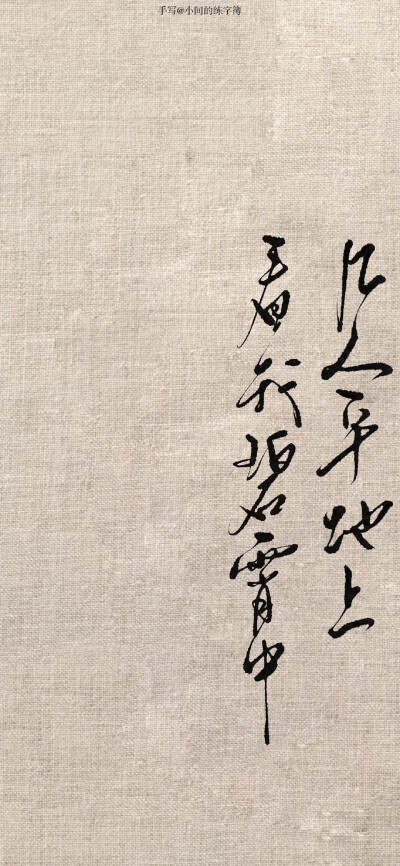 手写@小间的练字簿
凡人平地上
看我碧霄中